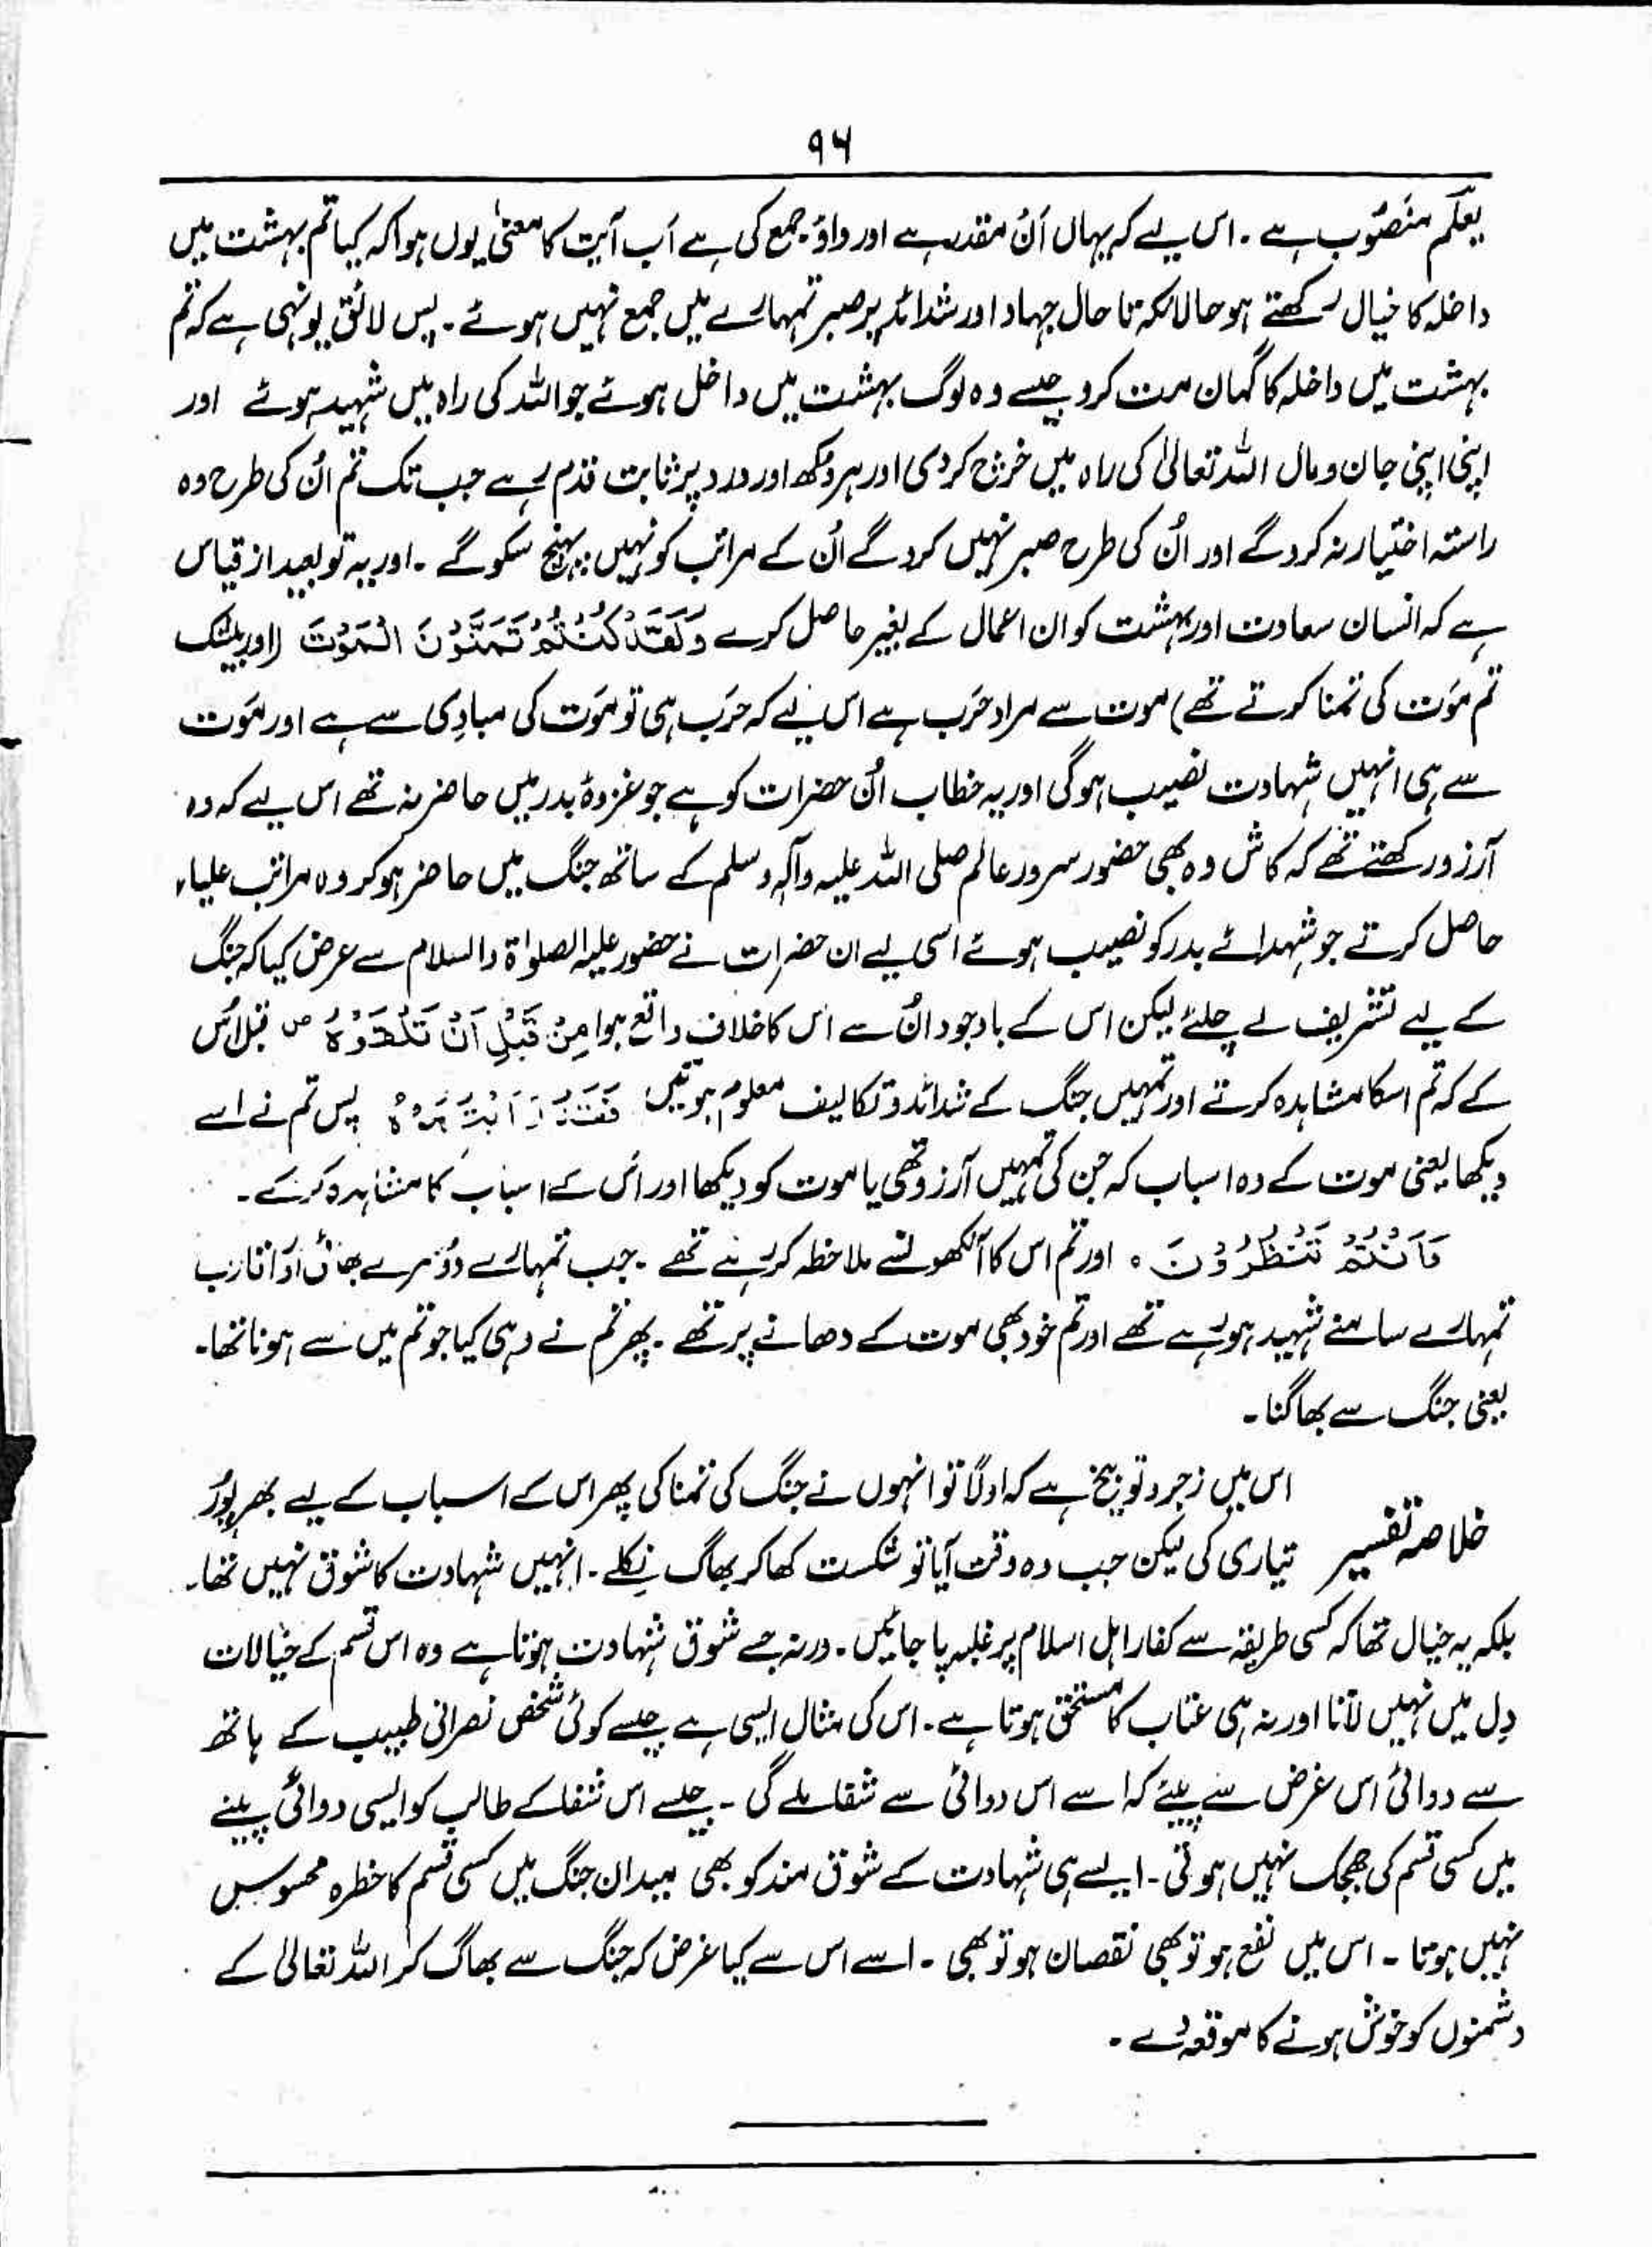 ۹۶
یعلَم منصُوب ہے ۔ اس لیے کہ یہاں اَنْ مقدر ہے اور واوٴ جمع کی ہے اَب آیت کا معنیٰ یوں ہوا کہ کیا تم بہشت میں
داخلہ کا خیال رکھتے ہو حالانکہ تا حال جہاد اور شدائد پر صبر تمہارے میں جمع نہیں ہوئے ۔ پس لائق یونہی ہے کہ تم
بہشت میں داخلہ کا گمان مت کرو جیسے وہ لوگ بہشت میں داخل ہوئے جو اللہ کی راہ میں شہید ہوئے اور
اپنی اپنی جان و مال اللہ تعالیٰ کی راہ میں خرچ کر دی اور ہر دکھ اور درد پر ثابت قدم رہے جب تک تم اُن کی طرح وہ
راستہ اختیار نہ کرو گے اور اُن کی طرح صبر نہیں کرو گے اُن کے مراتب کو نہیں پہنچ سکو گے ۔ اور یہ تو بعید از قیاس
ہے کہ انسان سعادت اور بہشت کو ان اعمال کے بغیر حاصل کرے وَلَقَدْ كُنْتُمْ تَمَنَّوْنَ الْمَوْتَ (اور بیشک
تم مَوت کی تمنا کرتے تھے) موت سے مراد حَرب ہے اس لیے کہ حَرب ہی تو مَوت کی مبادِی سے ہے اور مَوت
سے ہی انہیں شہادت نصیب ہوگی اور یہ خطاب اُن حضرات کو ہے جو غزوۂ بدر میں حاضر نہ تھے اس لیے کہ وہ
آرزو رکھتے تھے کہ کاش وہ بھی حضور سرور عالم صلی اللہ علیہ وآلہٖ وسلم کے ساتھ جنگ میں حاضر ہو کر وہ مراتب علیاء
حاصل کرتے جو شہدائے بدر کو نصیب ہوئے اسی لیے ان حضرات نے حضور علیہ الصلوٰۃ والسلام سے عرض کیا کہ جنگ
کے لیے تشریف لے چلئے لیکن اس کے باوجود اُن سے اس کا خلاف واقع ہوا مِنْ قَبْلِ اَنْ تَلْقَوْهُ ص قبل اس
کے کہ تم اسکا مشاہدہ کرتے اور تمہیں جنگ کے شدائد و تکالیف معلوم ہوتیں فَقَدْ رَاَيْتُمُوْهُ پس تم نے اسے
دیکھا یعنی موت کے وہ اسباب کہ جن کی تمہیں آرزو تھی یا موت کو دیکھا اور اس کے اسباب کا مشاہدہ کر کے ۔
وَاَنْتُمْ تَنْظُرُوْنَ ہ اور تم اس کا آنکھوں سے ملاحظہ کر رہے تھے ۔ جب تمہارے دوسرے بھائی اور اقارب
تمہارے سامنے شہید ہو رہے تھے اور تم خود بھی موت کے دھانے پر تھے ۔ پھر تم نے وہی کیا جو تم میں سے ہونا تھا۔
یعنی جنگ سے بھاگنا ۔
اس میں زجر و توبیخ ہے کہ اولاً تو انہوں نے جنگ کی تمنا کی پھر اس کے اسباب کے لیے بھر پور
خلاصہ تفسیر تیاری کی لیکن جب وہ وقت آیا تو شکست کھا کر بھاگ نکلے ۔ انہیں شہادت کا شوق نہیں تھا۔
بلکہ یہ خیال تھا کہ کسی طریقہ سے کفار اہل اسلام پر غلبہ پا جائیں ۔ ورنہ جسے شوق شہادت ہوتا ہے وہ اس قسم کے خیالات
دِل میں نہیں لاتا اور نہ ہی عتاب کا مستحق ہوتا ہے ۔ اس کی مثال ایسی ہے جیسے کوئی شخص نصرانی طبیب کے ہاتھ
سے دوائی اس غرض سے پیئے کہ اسے اس دوائی سے شفا ملے گی ۔ جیسے اس شفا کے طالب کو ایسی دوائی پینے
میں کسی قسم کی جھجک نہیں ہوتی ۔ ایسے ہی شہادت کے شوق مند کو بھی میدان جنگ میں کسی قسم کا خطرہ محسوس
نہیں ہوتا ۔ اس میں نفع ہو تو بھی نقصان ہو تو بھی ۔ اسے اس سے کیا غرض کہ جنگ سے بھاگ کر اللہ تعالیٰ کے
دشمنوں کو خوش ہونے کا موقعہ دے ۔